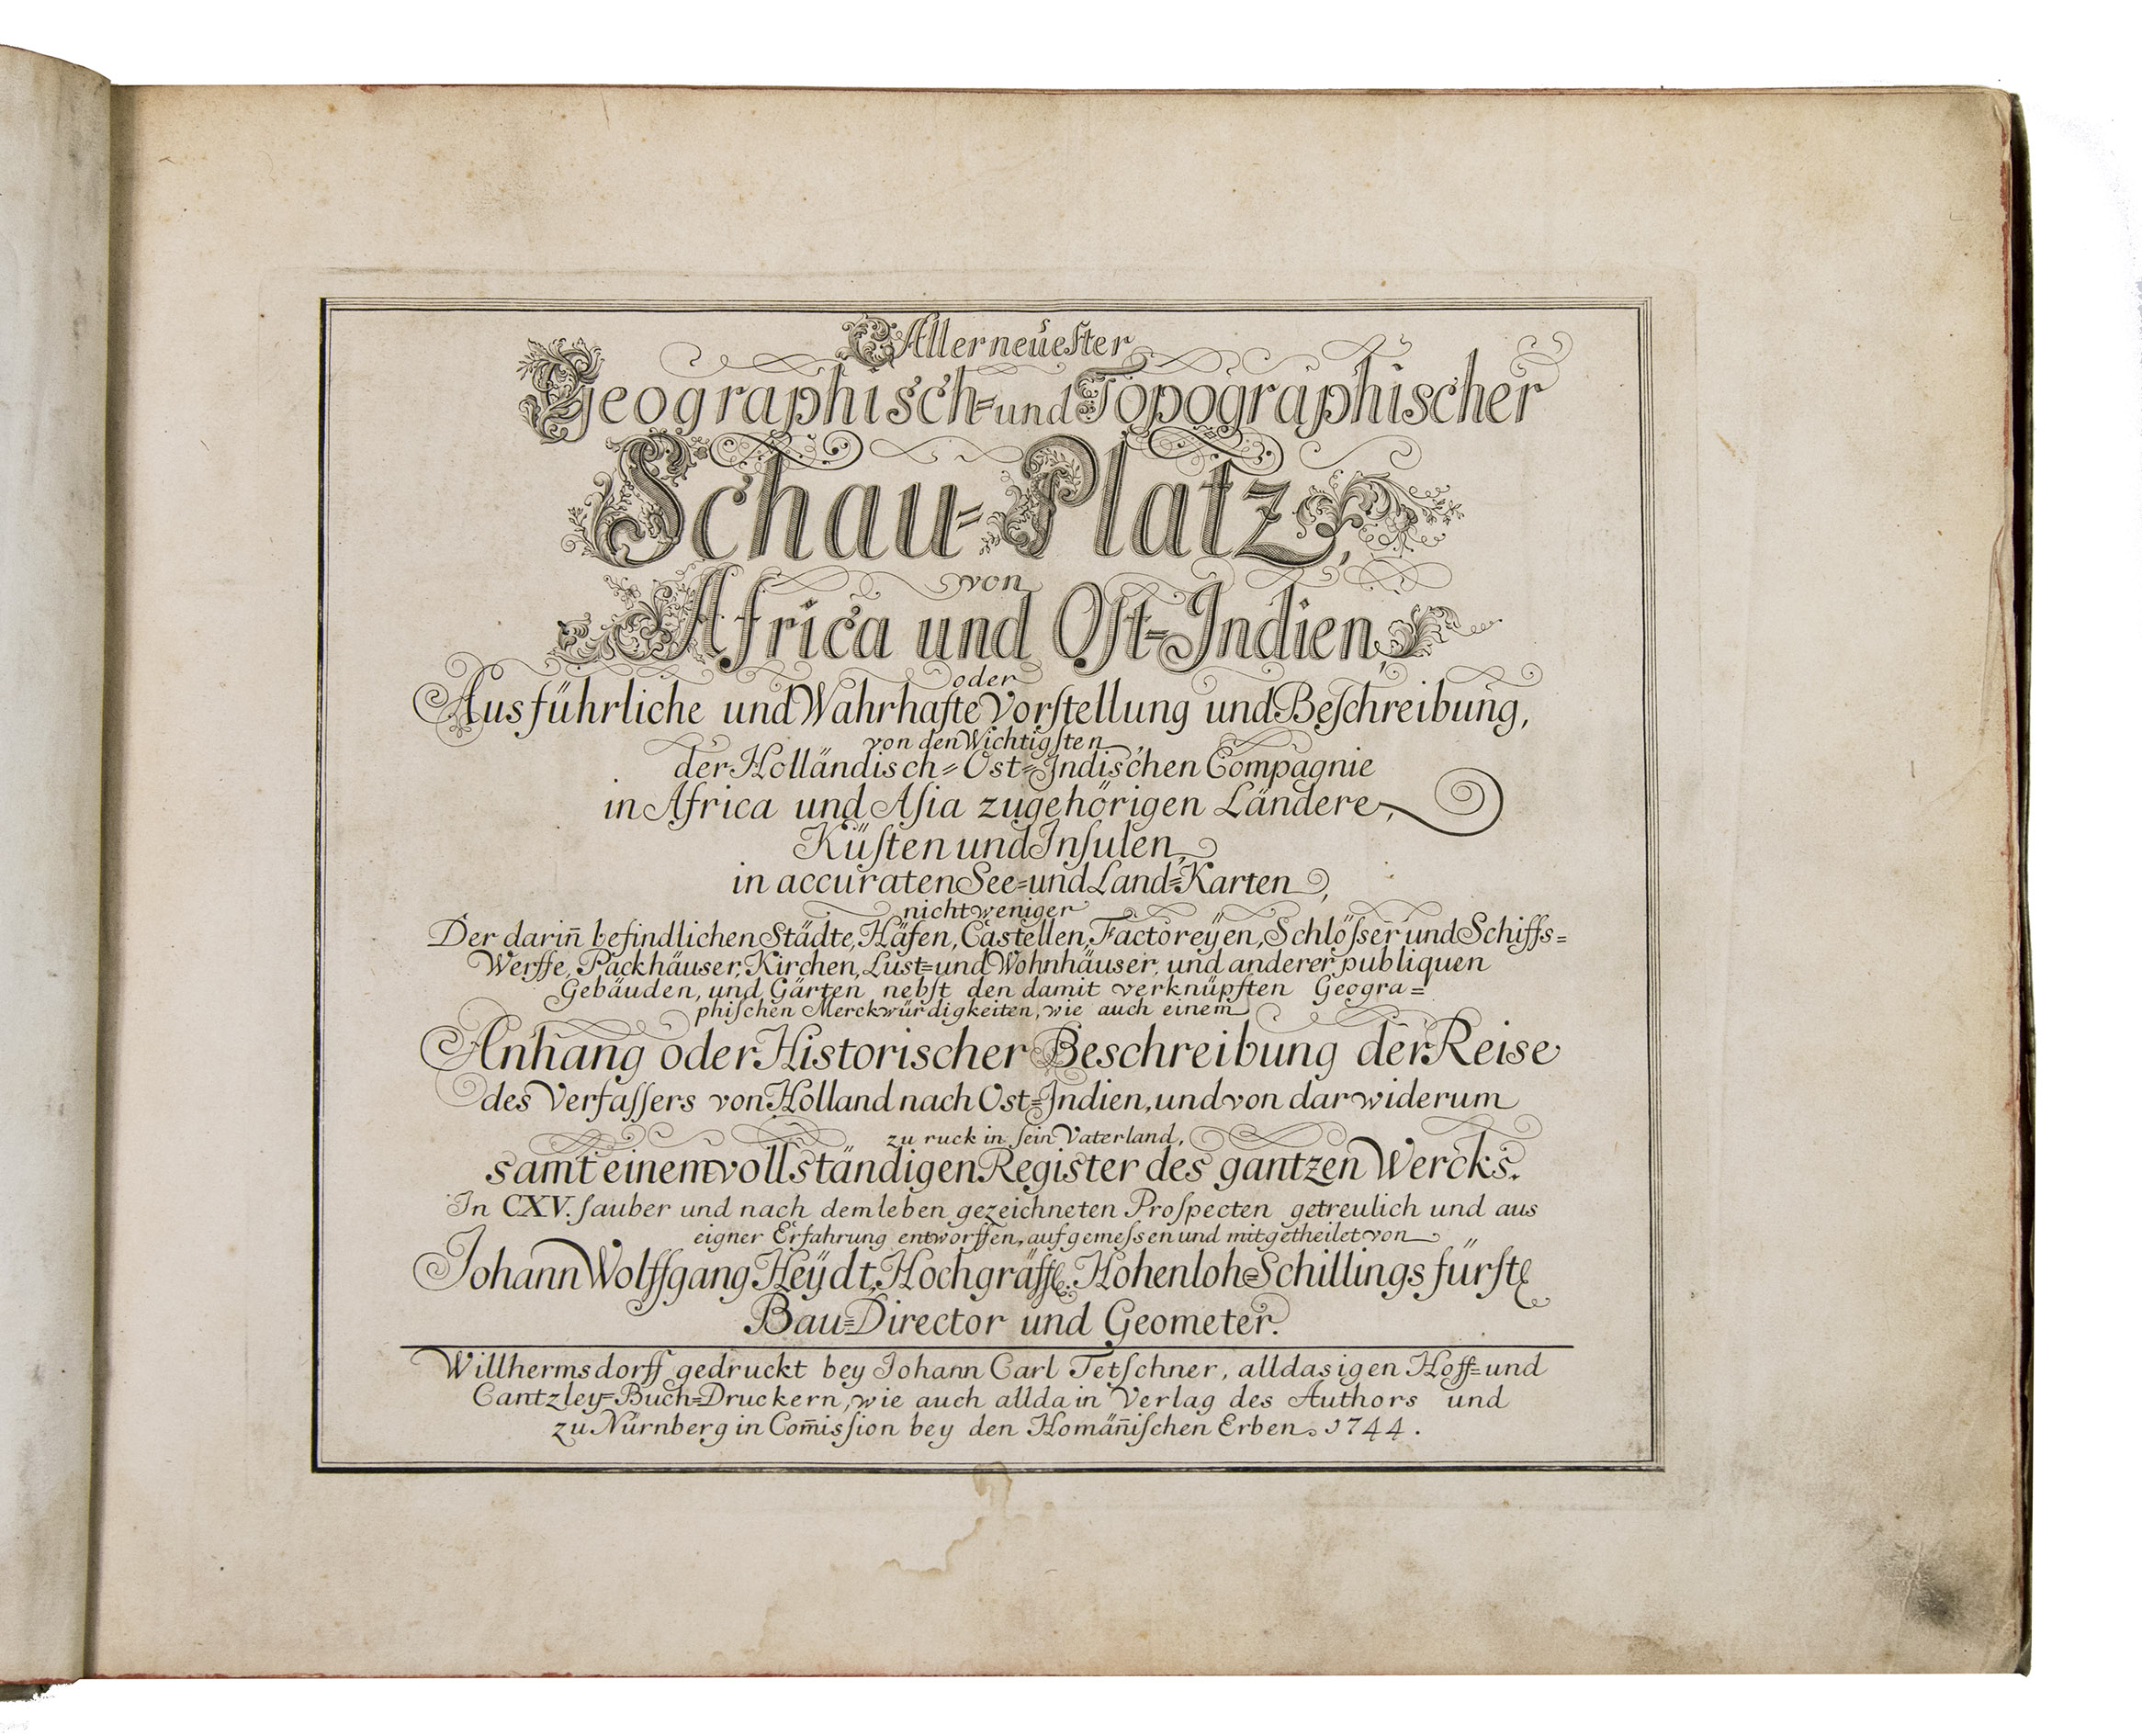 Allerneuester
Geographisch= und Topographischer
Schau=Platz,
von
Africa und Oſt=Indien,
oder
Ausführliche und Wahrhafte Vorſtellung und Beſchreibung,
von den Wichtigſten
der Holländisch=Ost=Indischen Compagnie
in Africa und Aſia zugehörigen Ländere,
Küſten und Inſulen,
in accuraten See=und Land=Karten,
nicht weniger
Der dariñ befindlichen Städte, Häfen, Castellen, Factoreÿen, Schlöſser und Schiffs=
Werffe, Packhäuser, Kirchen, Lust=und Wohnhäuser, und anderer publiquen
Gebäuden, und Gärten nebſt den damit verknüpften Geogra=
phiſchen Merckwürdigkeiten, wie auch einem
Anhang oder Historischer Beschreibung der Reise
des Verfaſſers von Holland nach Ost=Indien, und von dar widerum
zu ruck in ſein Vaterland,
samt einem vollständigen Register des gantzen Wercks.
In CXV. ſauber und nach dem leben gezeichneten Proſpecten getreulich und aus
eigner Erfahrung entworffen, aufgemeſsen und mitgetheilet von
Johann Wolffgang Heÿdt, Hochgräffl. Hohenloh=Schillingsfürſtl
Bau=Director und Geometer.
Willhermsdorff gedruckt bey Johann Carl Tetſchner, alldasigen Hoff=und
Cantzley=Buch=Druckern, wie auch allda in Verlag des Authors und
zu Nürnberg in Com̄iſsion bey den Homäñiſchen Erben. 1744.